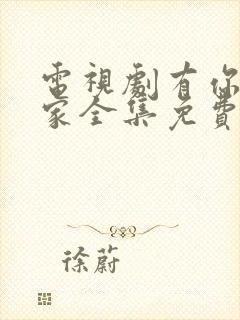 電視劇有你
家全集免費
徐蔚